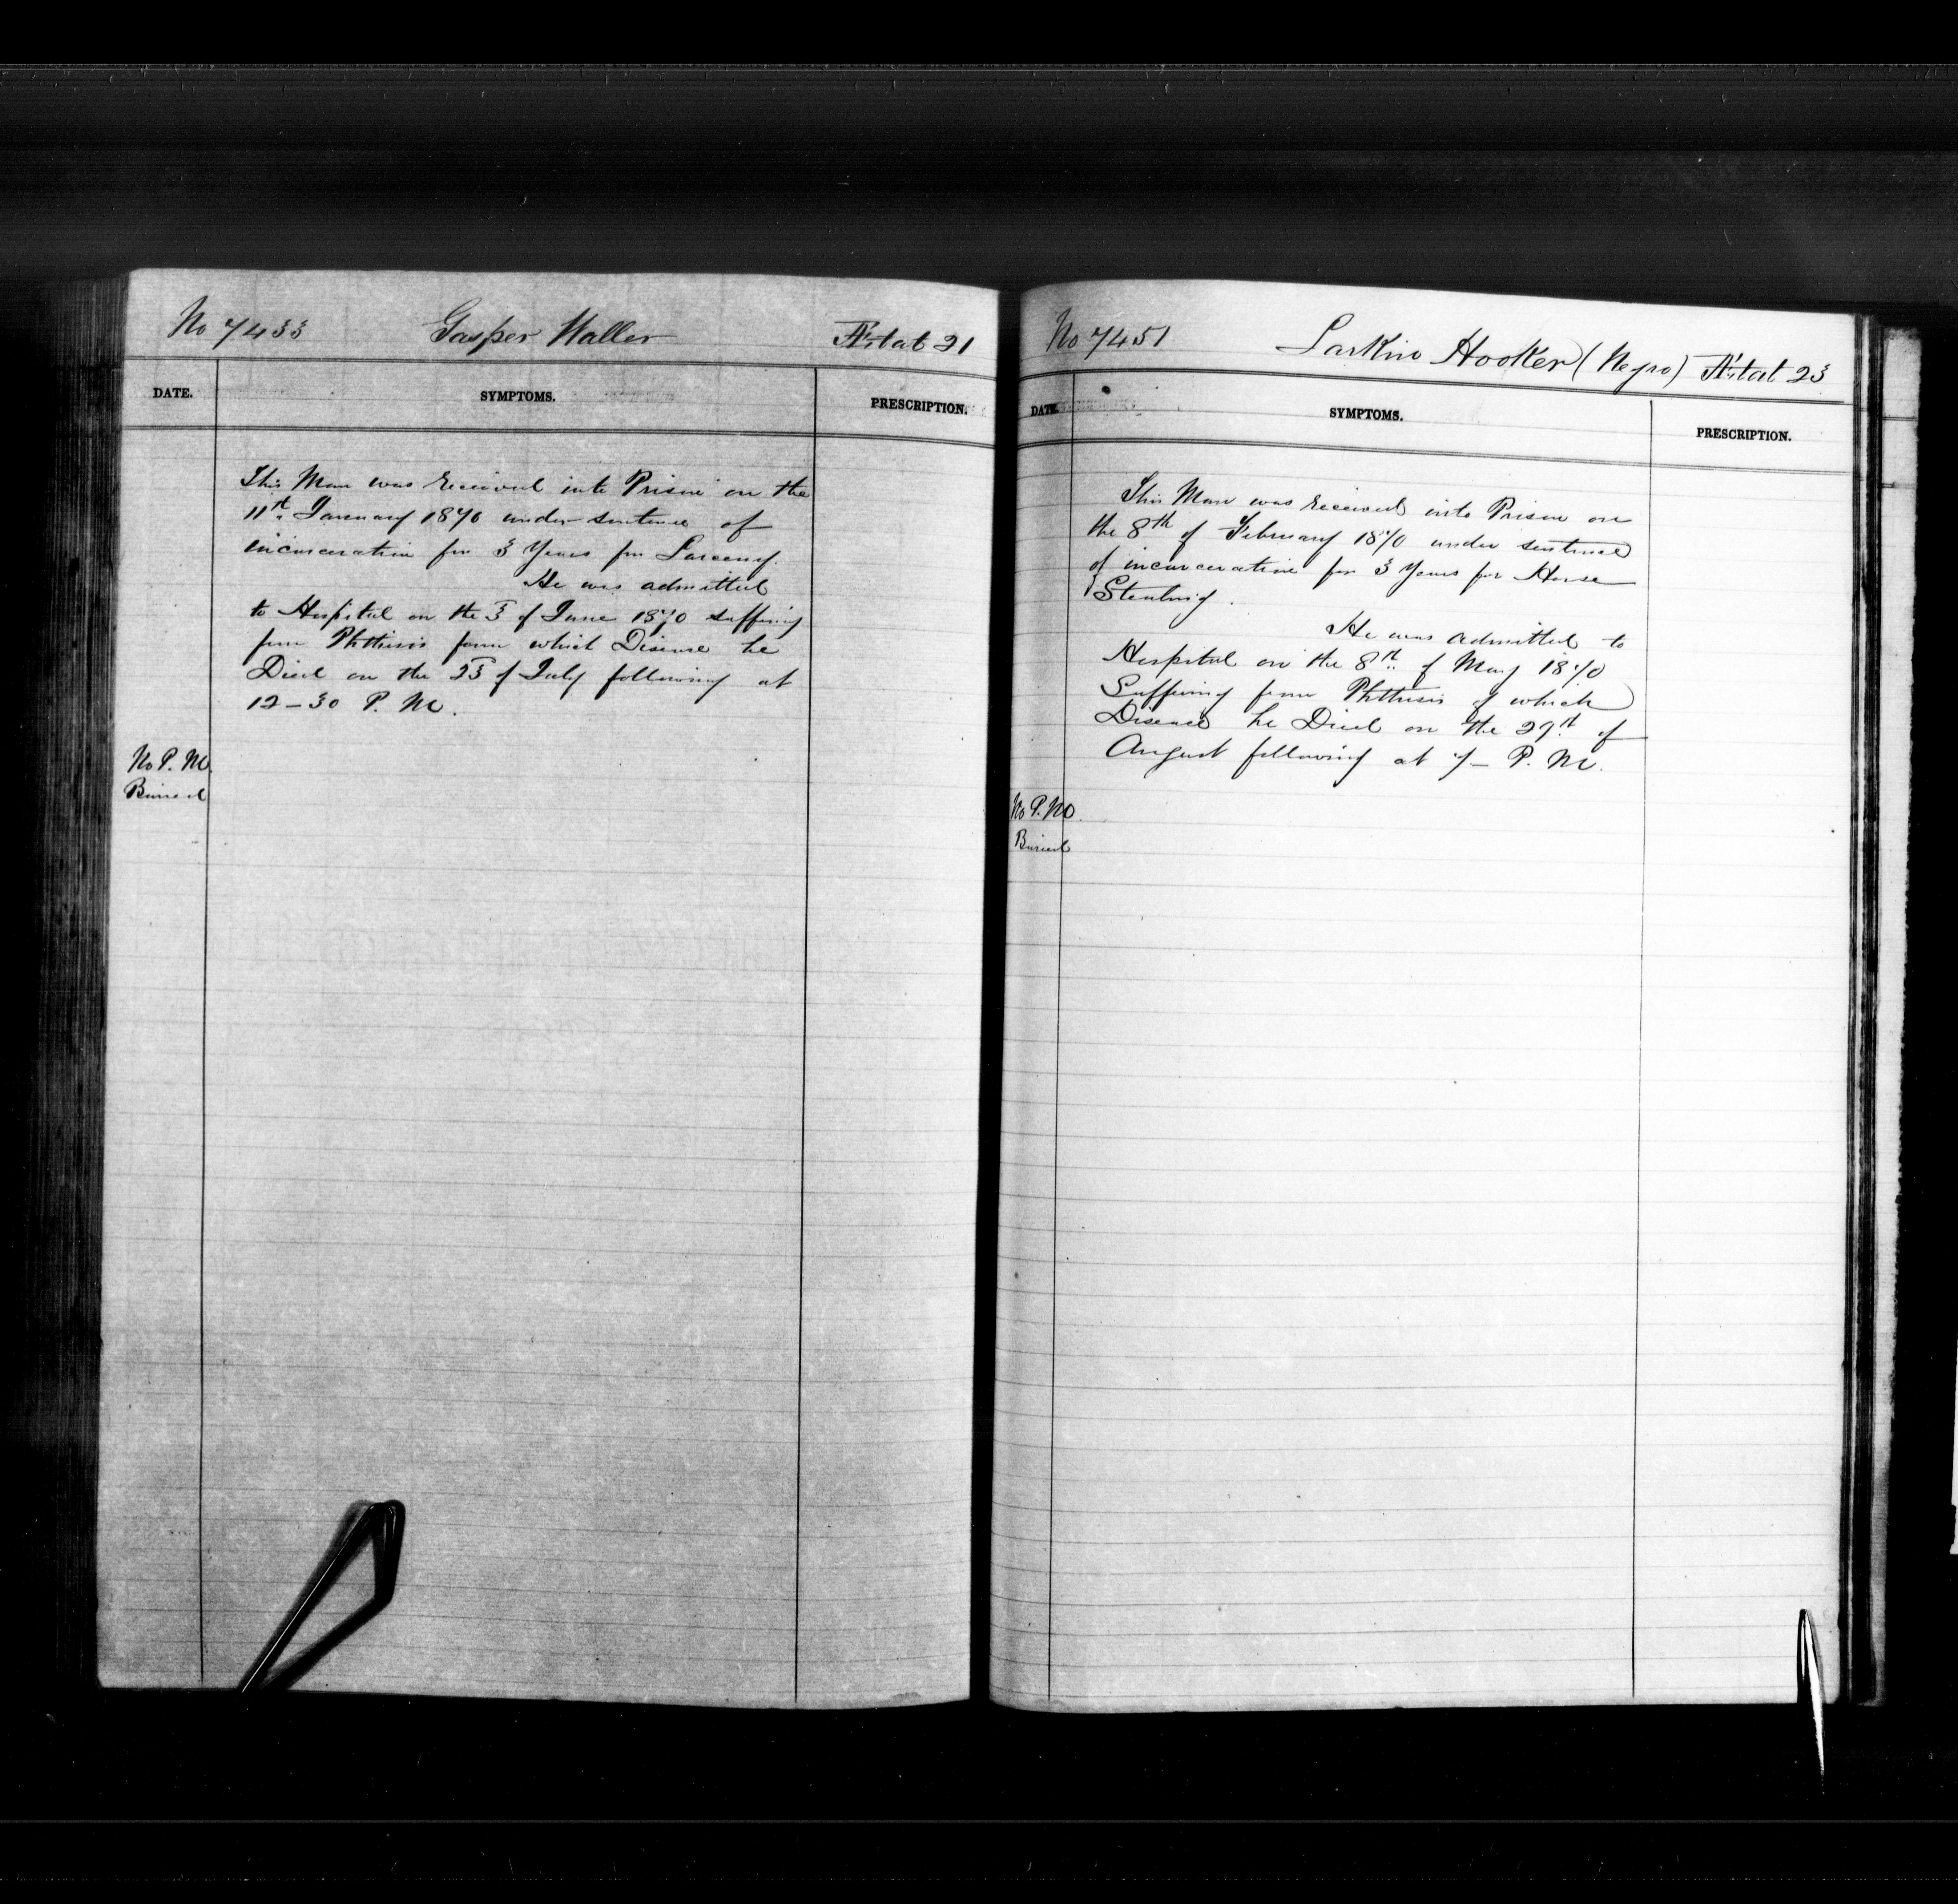 No 7433 Gasper Waller Ætat 21
DATE. SYMPTOMS. PRESCRIPTION.
This Man was received into Prison on the
11th January 1870 under sentence of
incarceration for 3 Years for Larceny.
He was admitted
to Hospital on the 3 of June 1870 suffering
from Phthisis from which Disease he
Died on the 23 of July following at
12-30 P. M.
No P. M.
Buried
No 7451 Larkin Hooker (Negro) Ætat 23
DATE. SYMPTOMS. PRESCRIPTION.
This Man was received into Prison on
the 8th of February 1870 under sentence
of incarceration for 3 Years for Horse
Stealing.
He was admitted to
Hospital on the 8th of May 1870
Suffering from Phthisis of which
Disease he Died on the 29th of
August following at 7- P. M.
No P. M.
Buried